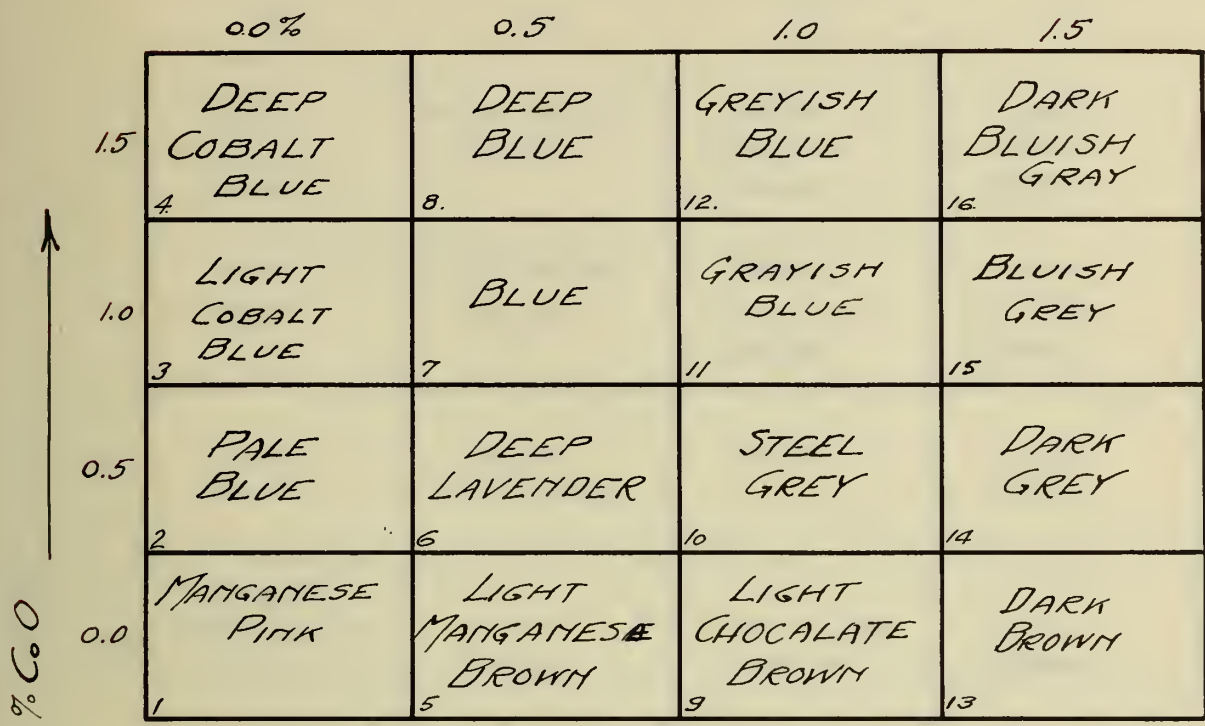 0.0% 0.5 1.0 1.5
1.5
DEEP
COBALT
BLUE
4.
DEEP
BLUE
8.
GREYISH
BLUE
12.
DARK
BLUISH
GRAY
16.
1.0
LIGHT
COBALT
BLUE
3
BLUE
7
GRAYISH
BLUE
11
BLUISH
GREY
15
0.5
PALE
BLUE
2
DEEP
LAVENDER
6
STEEL
GREY
10
DARK
GREY
14
% CoO
0.0
MANGANESE
PINK
1
LIGHT
MANGANESE
BROWN
5
LIGHT
CHOCALATE
BROWN
9
DARK
BROWN
13